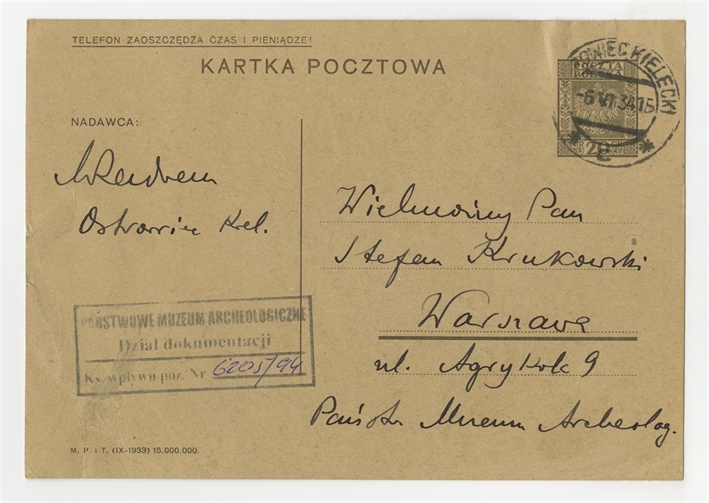 TELEFON ZAOSZCZĘDZA CZAS I PIENIĄDZE!
KARTKA POCZTOWA
POCZTA
POLSKA
OWIEC KIELECKI
-6 VI 34 15
* e *
NADAWCA:
Ostrowiec Kiel.
Wielmożny Pan
Stefan Krukowski
Warszawa
ul. Agrykola 9
Państw. Muzeum Archeolog.
PAŃSTWOWE MUZEUM ARCHEOLOGICZNE
Dział dokumentacji
Ks. wpływu poz. Nr 6205/94
M. P. i T. (IX-1933) 15.000.000.